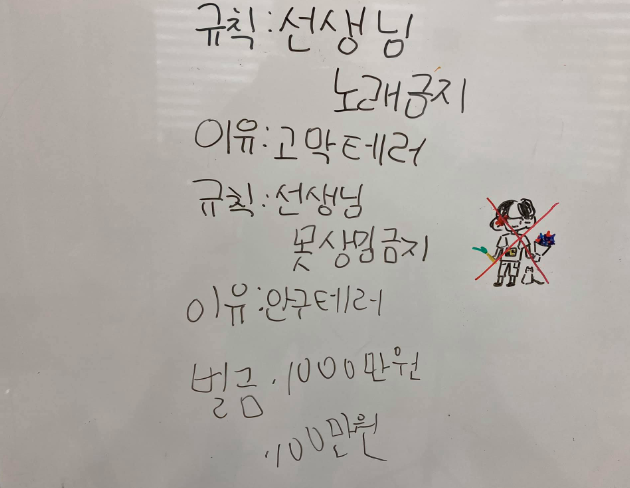 규칙:선생님
노래금지
이유:고막테러
규칙:선생님
못상밈금지
이유:안구테러
벌금·1000만원
·100만원